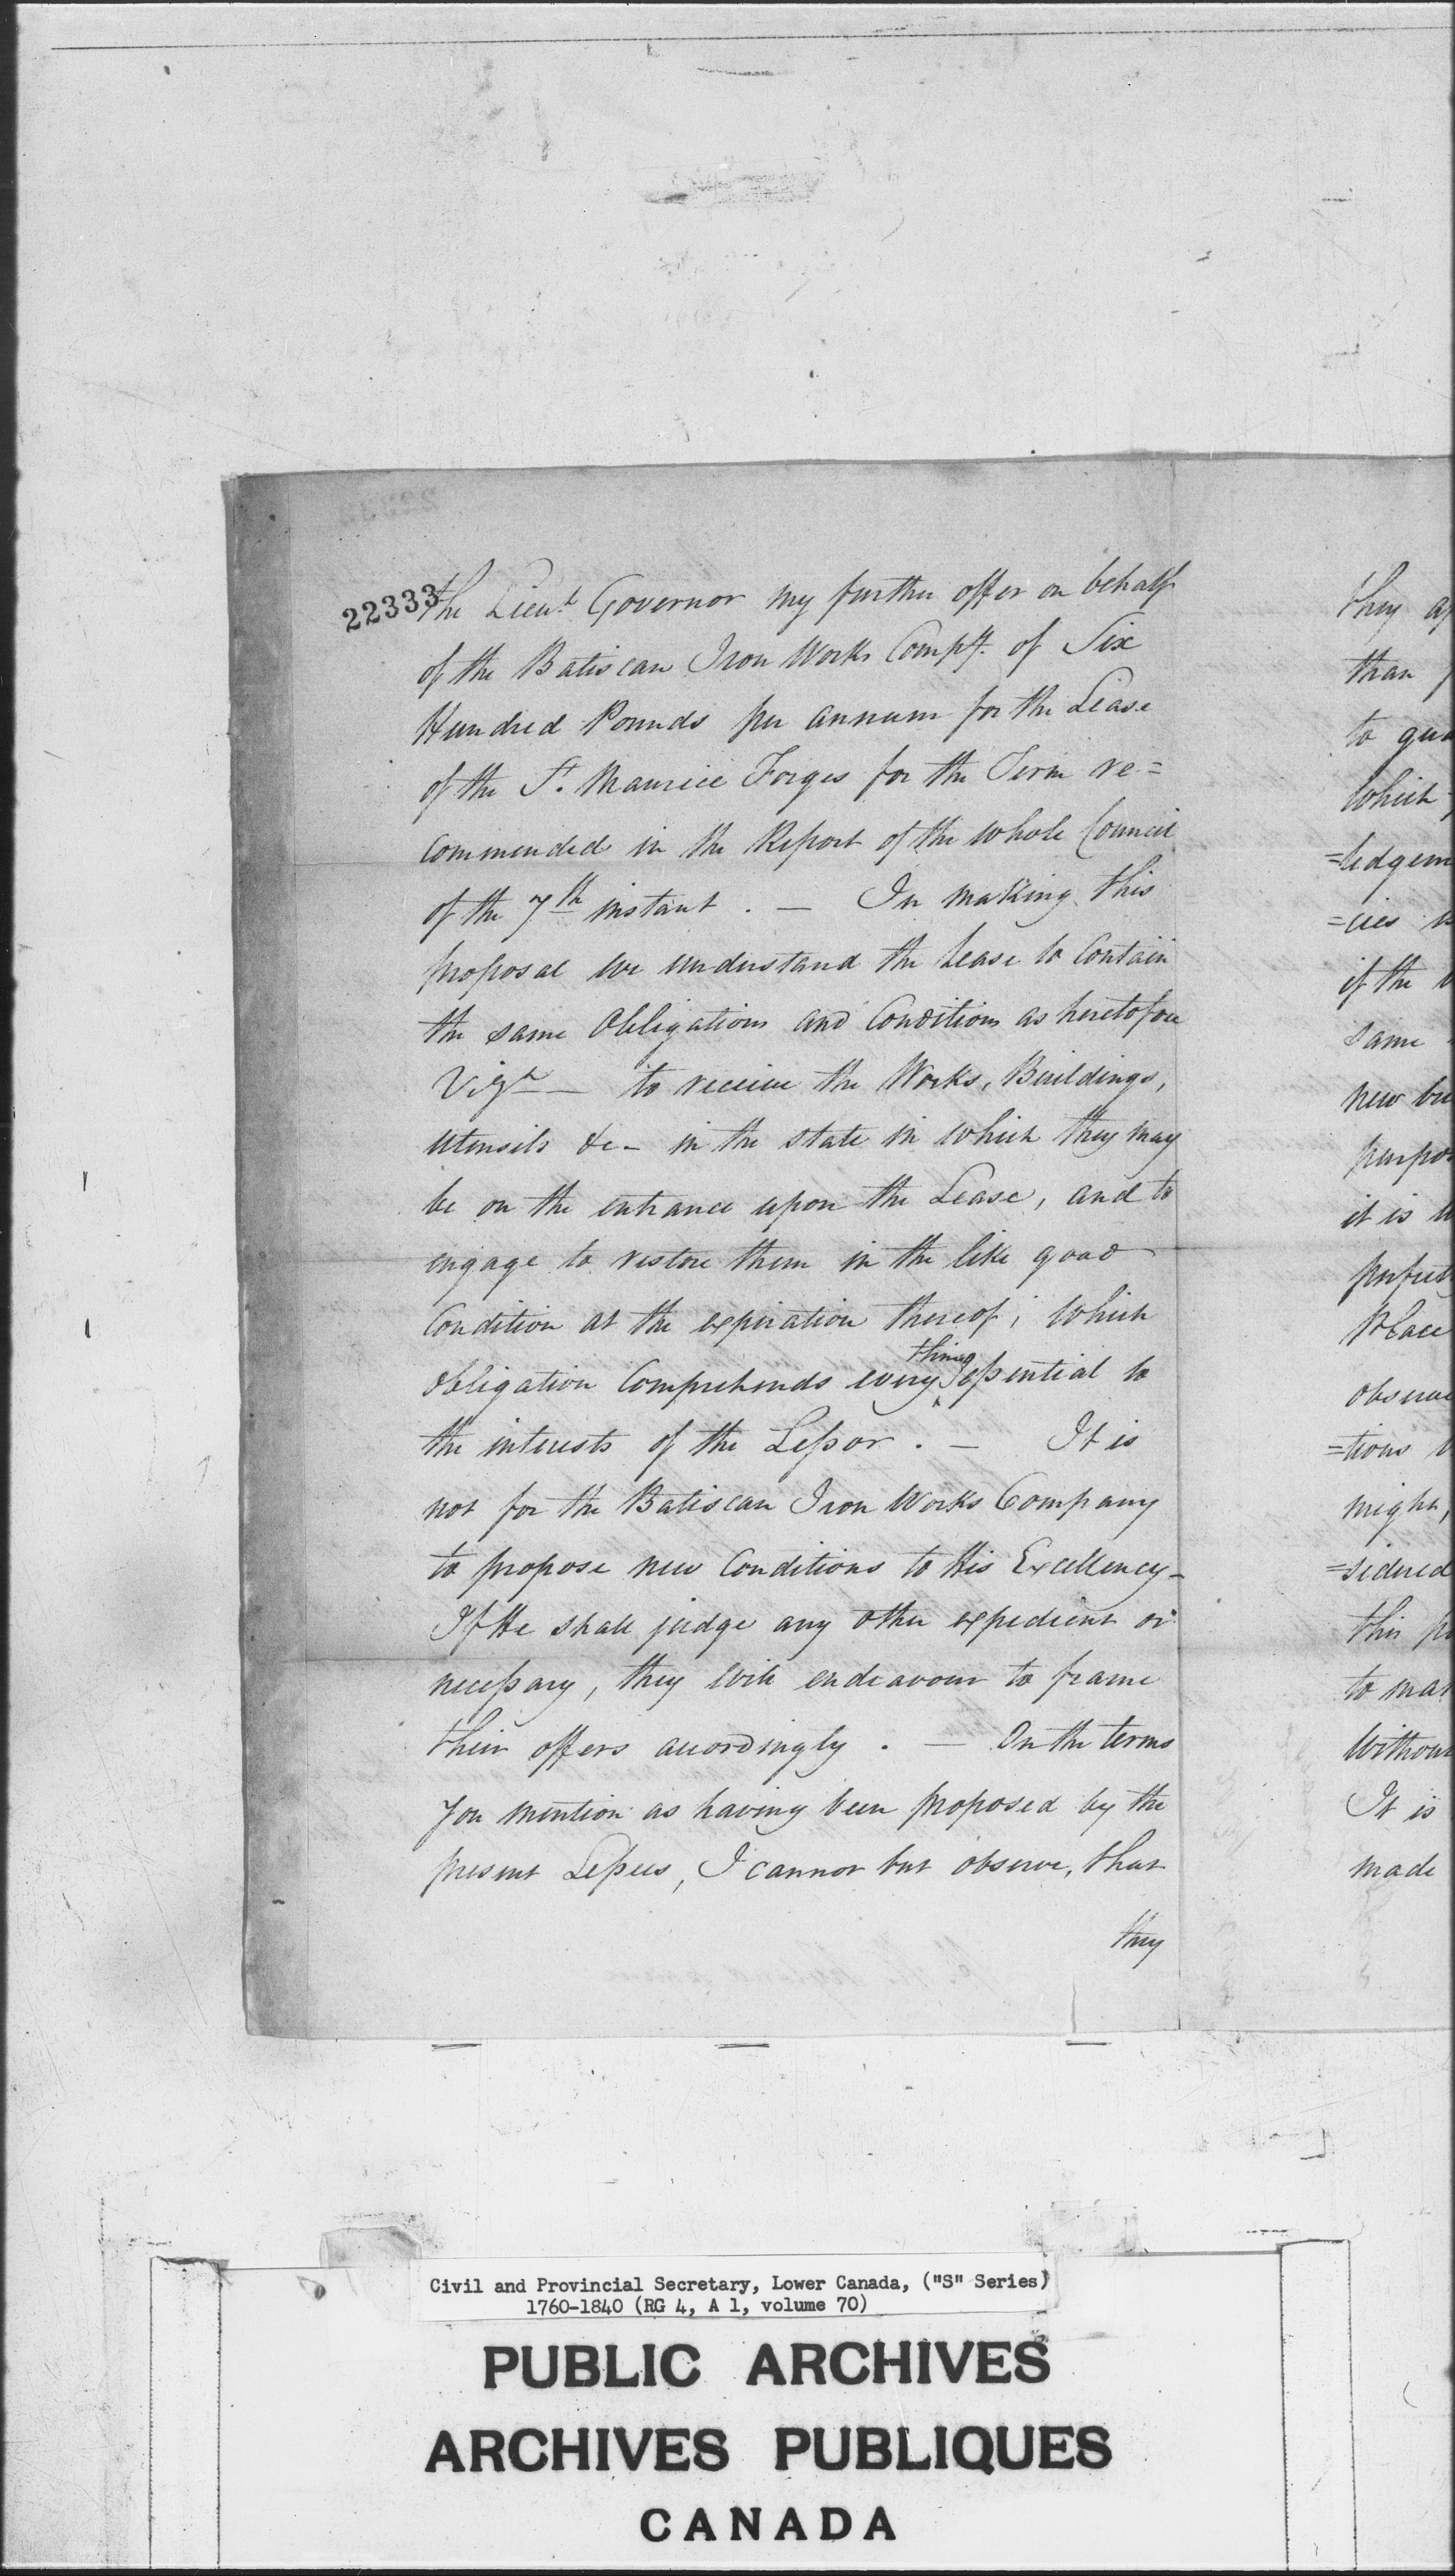 22333
the Lieut Governor my further offer on behalf
of the Batiscan Iron Works Compy. of Six
Hundred Pounds per annum for the Lease
of the St. Maurice Forges for the Term re=
commended in the Report of the whole Council
of the 7th instant . — In making this
proposal we understand the Lease to Contain
the same Obligations and Conditions as heretofore
Vizt — to receive the Works, Buildings,
utensils &c - in the state in which they may
be on the entrance upon the Lease, and to
engage to restore them in the like good
Condition at the expiration thereof; which
obligation Comprehends every thing essential to
the interests of the Lessor . — It is
not for the Batiscan Iron Works Company
to propose new Conditions to His Excellency -
If He shall judge any other expedient or
necessary, they will endeavour to frame
their offers accordingly . — On the terms
you mention as having been proposed by the
present Lessees, I cannot but observe, that
they
they
than
to
which
=ledgem
=cies
if the
same
new
it is
Place
observe
=tions
might,
=sidered
this
to
without
It is
made
Civil and Provincial Secretary, Lower Canada, ("S" Series)
1760-1840 (RG 4, A 1, volume 70)
PUBLIC ARCHIVES
ARCHIVES PUBLIQUES
CANADA